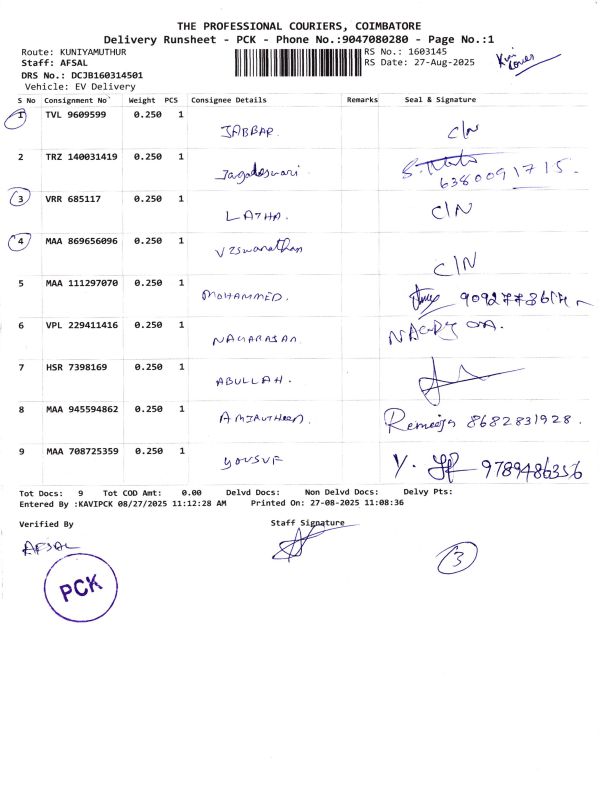 THE PROFESSIONAL COURIERS, COIMBATORE
Delivery Runsheet - PCK - Phone No.:9047080280 - Page No.:1
Route: KUNIYAMUTHUR RS No.: 1603145
Staff: AFSAL RS Date: 27-Aug-2025
DRS No.: DCJB160314501
Vehicle: EV Delivery
S No Consignment No Weight PCS Consignee Details Remarks Seal & Signature
1 TVL 9609599 0.250 1 JABBAR C/N
2 TRZ 140031419 0.250 1 Jagadeswari 6380091715.
3 VRR 685117 0.250 1 LATHA. C/N
4 MAA 869656096 0.250 1 Viswanathan C/N
5 MAA 111297070 0.250 1 MOHAMMED.
6 VPL 229411416 0.250 1 NAGARASAN
7 HSR 7398169 0.250 1 ABULLAH.
8 MAA 945594862 0.250 1 Remeeja 8682831928.
9 MAA 708725359 0.250 1 YOUSUF Y. 9789486356
Tot Docs: 9 Tot COD Amt: 0.00 Delvd Docs: Non Delvd Docs: Delvy Pts:
Entered By :KAVIPCK 08/27/2025 11:12:28 AM Printed On: 27-08-2025 11:08:36
Verified By Staff Signature
AFSAL
3
PCK